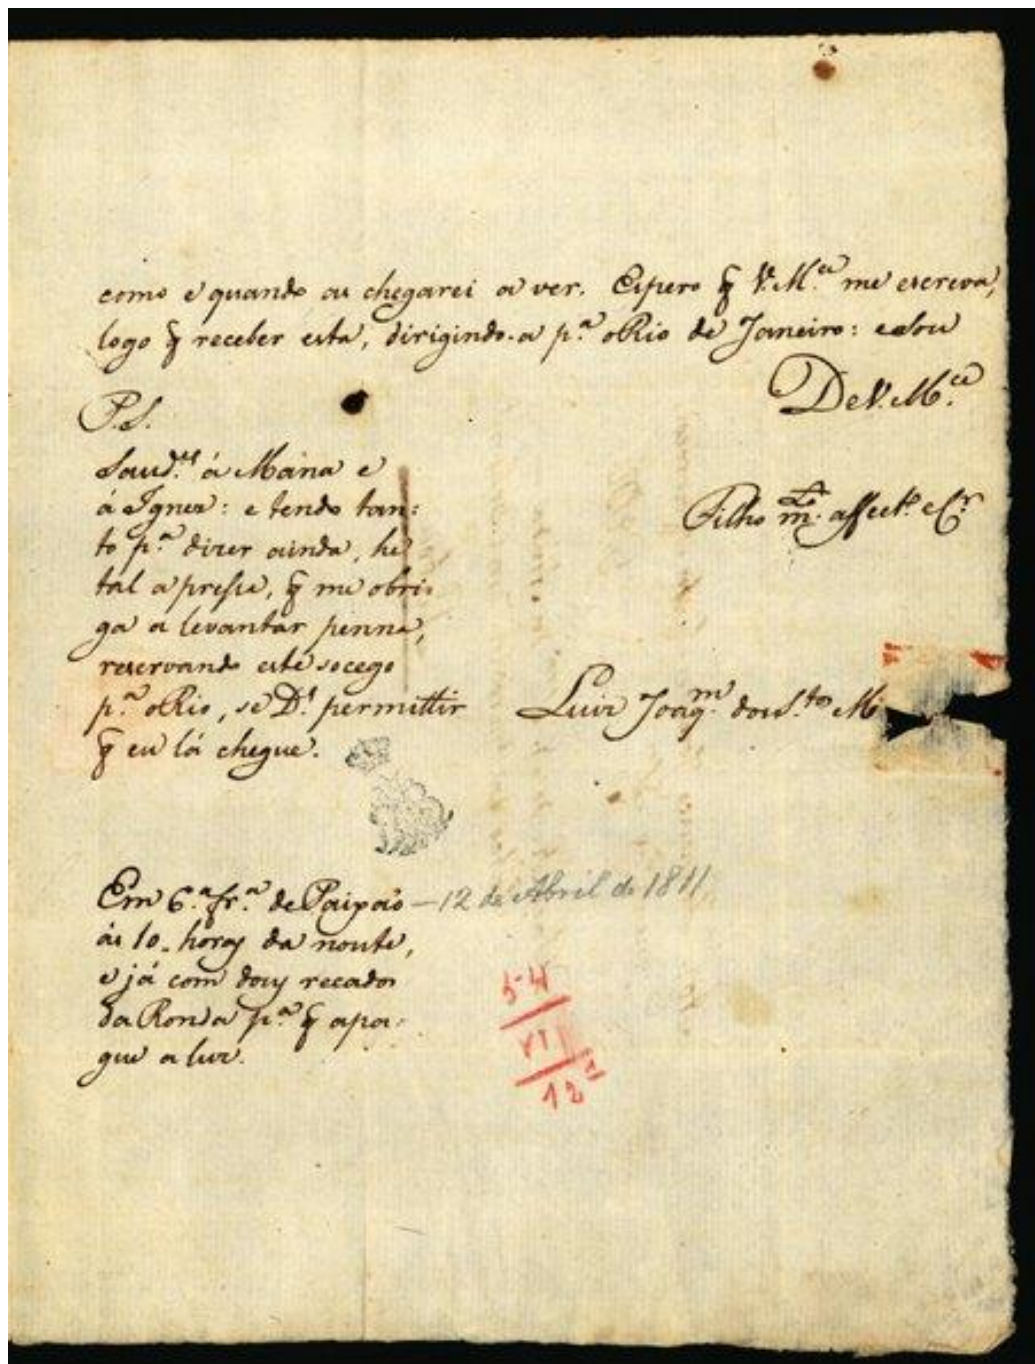 como e quando os chegarei a ver. Espero q̃ V. M.ce me escreva,
logo q̃ receber esta, dirigindo-a p.ª o Rio de Janeiro: e sou
De V. M.ce
P.S.
Saud.es á Mana e
á Ignez: e tendo tan:
to p.ª dizer ainda, he
tal a pressa, q̃ me obri:
ga a levantar penna,
reservando este socego
p.ª o Rio, se D.s permittir
q̃ eu lá chegue.
Filho m.to affect.o e Cr.
Luiz Joaq.m dos S.tos M
Em 6.ª fr.ª de Paixaõ
ás 10. horas da noute,
e já com dous recados
da Ronda p.ª q̃ apa:
gue a luz.
— 12 de Abril de 1811
54
VI
12